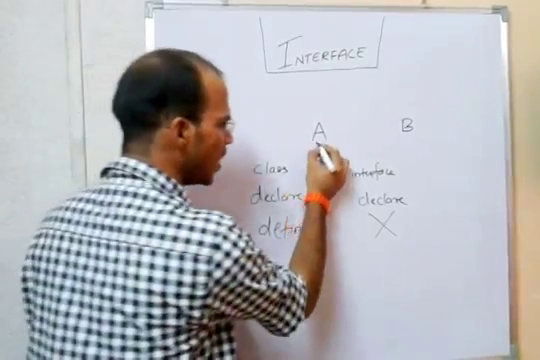 INTERFACE
A B
class interface
declare declare
defin X